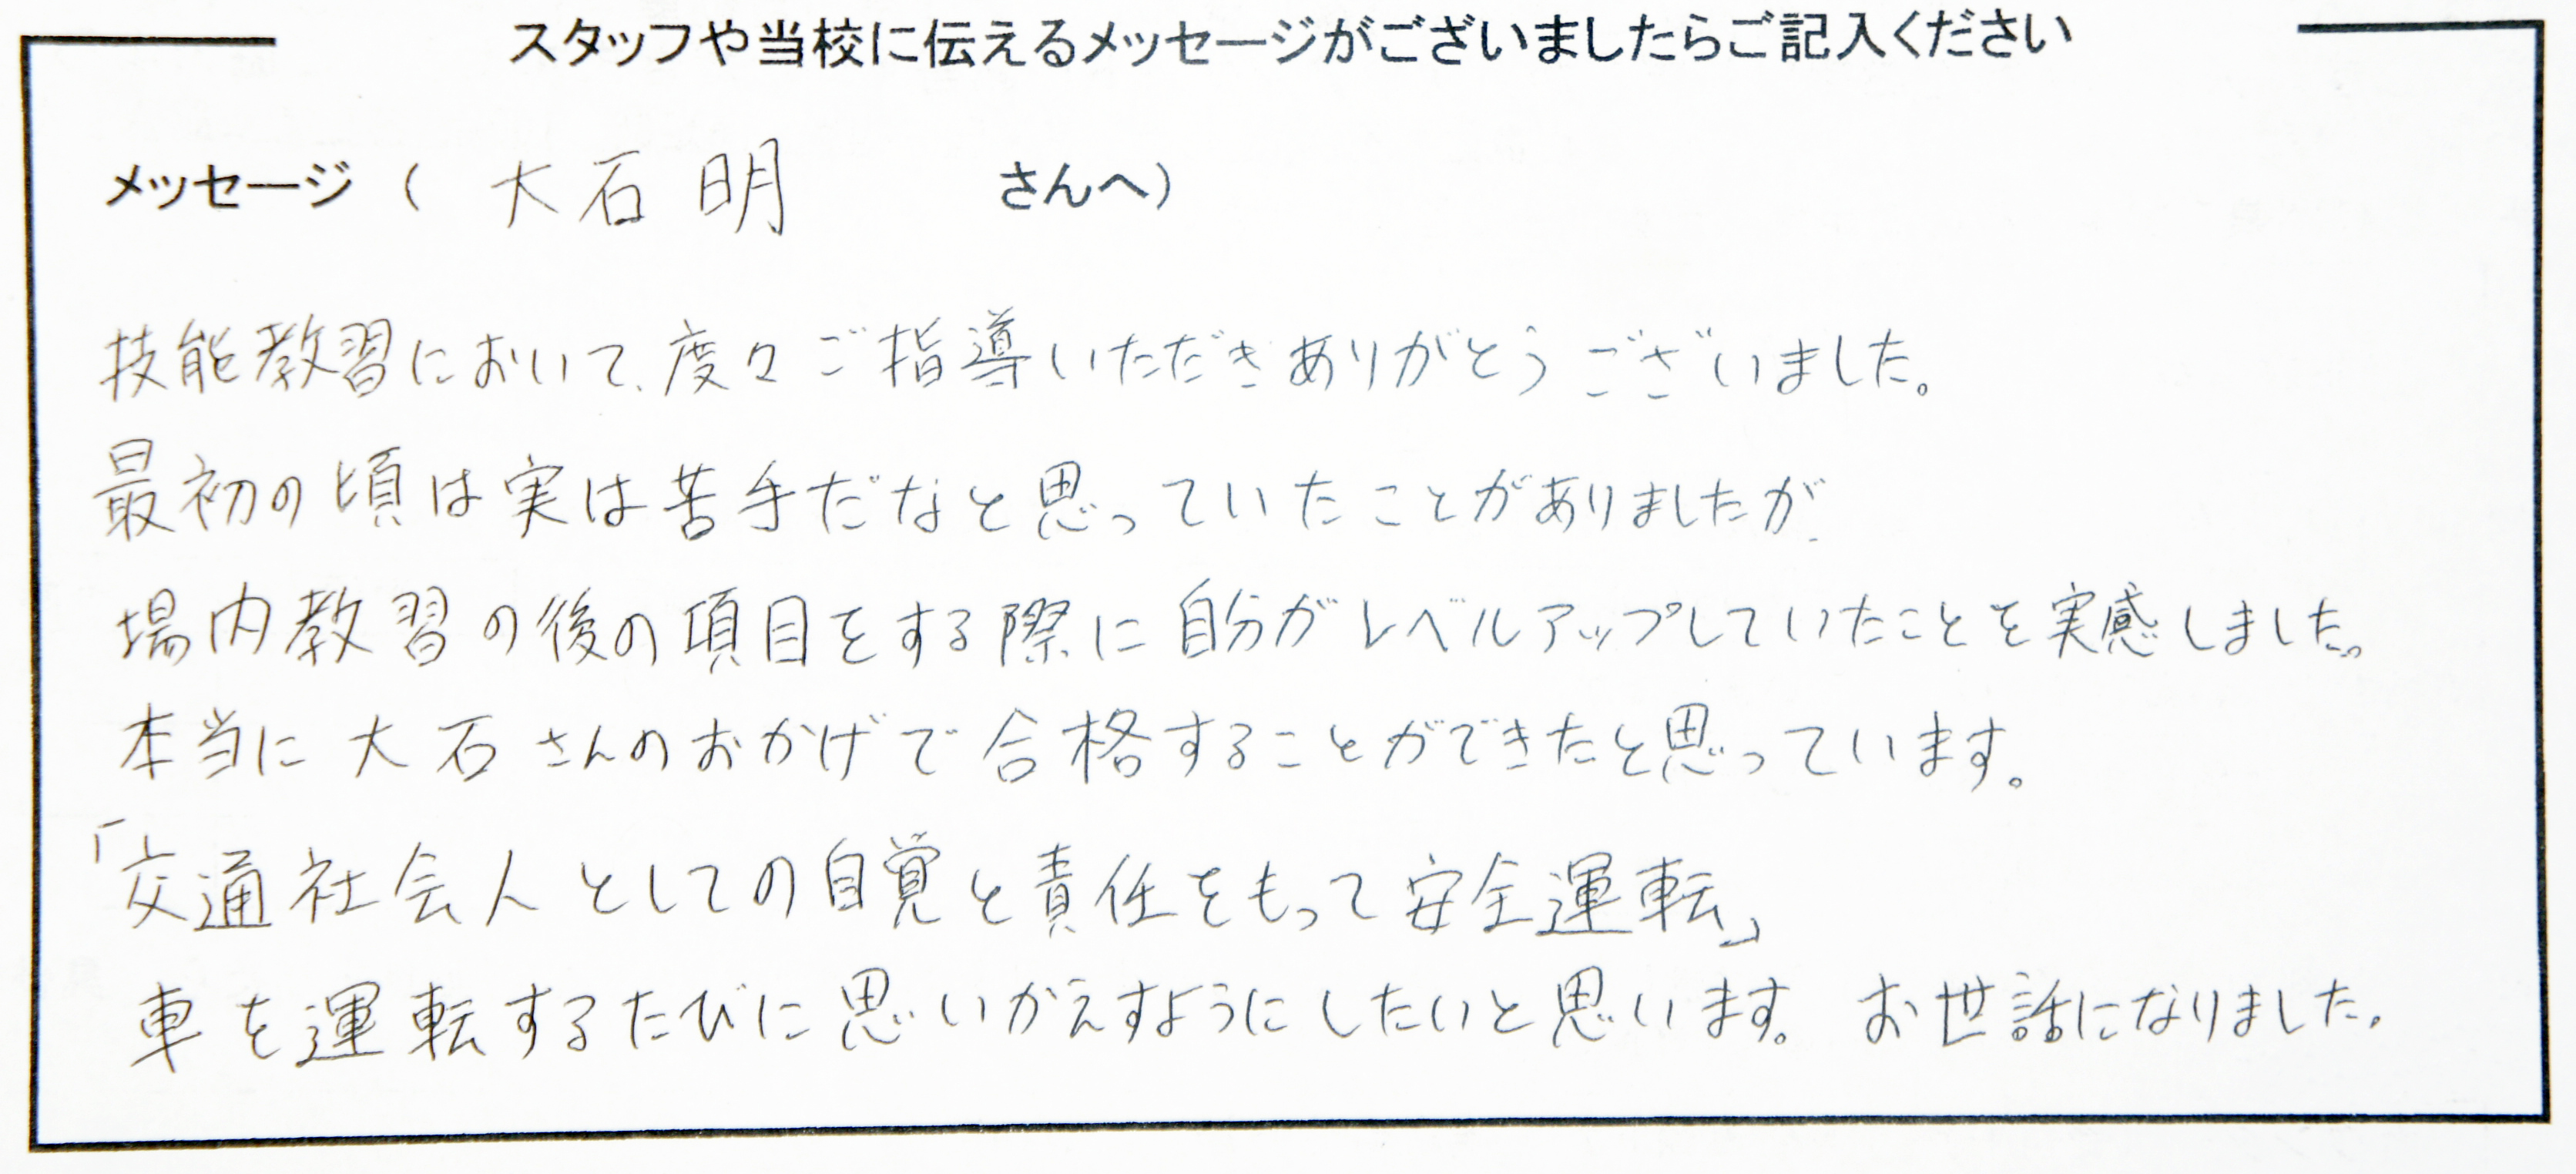 スタッフや当校に伝えるメッセージがございましたらご記入ください
メッセージ（ 大石 明 さんへ）
技能教習において、度々ご指導いただきありがとうございました。
最初の頃は実は苦手だなと思っていたことがありましたが、
場内教習の後の項目をする際に自分がレベルアップしていたことを実感しました。
本当に大石さんのおかげで合格することができたと思っています。
「交通社会人としての自覚と責任をもって安全運転」
車を運転するたびに思いかえすようにしたいと思います。お世話になりました。